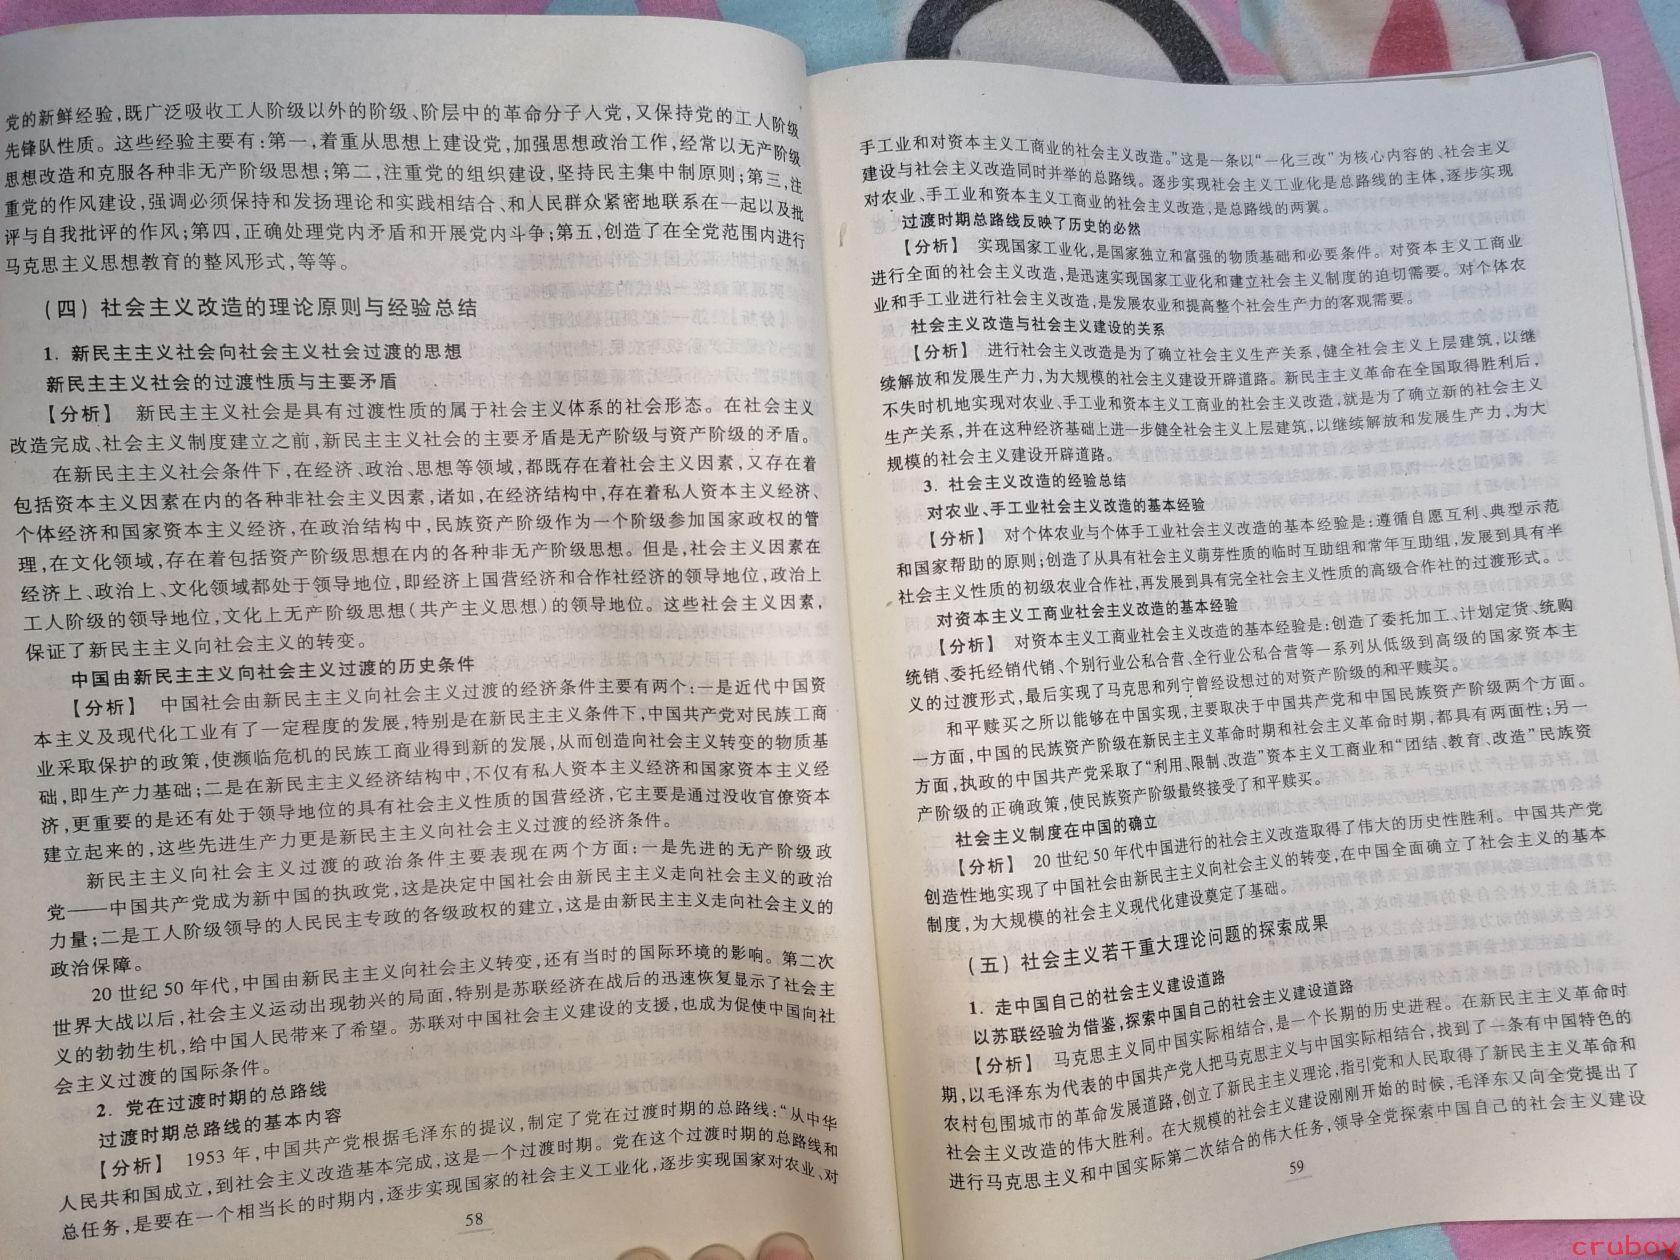 党的新鲜经验,既广泛吸收工人阶级以外的阶级、阶层中的革命分子人党,又保持党的工人阶级
先锋队性质。这些经验主要有:第一,着重从思想上建设党,加强思想政治工作,经常以无产阶级
思想改造和克服各种非无产阶级思想;第二,注重党的组织建设,坚持民主集中制原则;第三,注
重党的作风建设,强调必须保持和发扬理论和实践相结合、和人民群众紧密地联系在一起以及批
评与自我批评的作风;第四,正确处理党内矛盾和开展党内斗争;第五,创造了在全党范围内进行
马克思主义思想教育的整风形式,等等。
(四) 社会主义改造的理论原则与经验总结
1. 新民主主义社会向社会主义社会过渡的思想
新民主主义社会的过渡性质与主要矛盾
【分析】 新民主主义社会是具有过渡性质的属于社会主义体系的社会形态。在社会主义
改造完成、社会主义制度建立之前,新民主主义社会的主要矛盾是无产阶级与资产阶级的矛盾。
在新民主主义社会条件下,在经济、政治、思想等领域,都既存在着社会主义因素,又存在着
包括资本主义因素在内的各种非社会主义因素,诸如,在经济结构中,存在着私人资本主义经济、
个体经济和国家资本主义经济,在政治结构中,民族资产阶级作为一个阶级参加国家政权的管
理,在文化领域,存在着包括资产阶级思想在内的各种非无产阶级思想。但是,社会主义因素在
经济上、政治上、文化领域都处于领导地位,即经济上国营经济和合作社经济的领导地位,政治上
工人阶级的领导地位,文化上无产阶级思想(共产主义思想)的领导地位。这些社会主义因素,
保证了新民主主义向社会主义的转变。
中国由新民主主义向社会主义过渡的历史条件
【分析】 中国社会由新民主主义向社会主义过渡的经济条件主要有两个:一是近代中国资
本主义及现代化工业有了一定程度的发展,特别是在新民主主义条件下,中国共产党对民族工商
业采取保护的政策,使濒临危机的民族工商业得到新的发展,从而创造向社会主义转变的物质基
础,即生产力基础;二是在新民主主义经济结构中,不仅有私人资本主义经济和国家资本主义经
济,更重要的是还有处于领导地位的具有社会主义性质的国营经济,它主要是通过没收官僚资本
建立起来的,这些先进生产力更是新民主主义向社会主义过渡的经济条件。
新民主主义向社会主义过渡的政治条件主要表现在两个方面:一是先进的无产阶级政
党——中国共产党成为新中国的执政党,这是决定中国社会由新民主主义走向社会主义的政治
力量;二是工人阶级领导的人民民主专政的各级政权的建立,这是由新民主主义走向社会主义的
政治保障。
20世纪50年代,中国由新民主主义向社会主义转变,还有当时的国际环境的影响。第二次
世界大战以后,社会主义运动出现勃兴的局面,特别是苏联经济在战后的迅速恢复显示了社会主
义的勃勃生机,给中国人民带来了希望。苏联对中国社会主义建设的支援,也成为促使中国向社
会主义过渡的国际条件。
2. 党在过渡时期的总路线
过渡时期总路线的基本内容
【分析】 1953年,中国共产党根据毛泽东的提议,制定了党在过渡时期的总路线:“从中华
人民共和国成立,到社会主义改造基本完成,这是一个过渡时期。党在这个过渡时期的总路线和
总任务,是要在一个相当长的时期内,逐步实现国家的社会主义工业化,逐步实现国家对农业、对
58
手工业和对资本主义工商业的社会主义改造。”这是一条以“一化三改”为核心内容的、社会主义
建设与社会主义改造同时并举的总路线。逐步实现社会主义工业化是总路线的主体,逐步实现
对农业、手工业和资本主义工商业的社会主义改造,是总路线的两翼。
过渡时期总路线反映了历史的必然
【分析】 实现国家工业化,是国家独立和富强的物质基础和必要条件。对资本主义工商业
进行全面的社会主义改造,是迅速实现国家工业化和建立社会主义制度的迫切需要。对个体农
业和手工业进行社会主义改造,是发展农业和提高整个社会生产力的客观需要。
社会主义改造与社会主义建设的关系
【分析】 进行社会主义改造是为了确立社会主义生产关系,健全社会主义上层建筑,以继
续解放和发展生产力,为大规模的社会主义建设开辟道路。新民主主义革命在全国取得胜利后,
不失时机地实现对农业、手工业和资本主义工商业的社会主义改造,就是为了确立新的社会主义
生产关系,并在这种经济基础上进一步健全社会主义上层建筑,以继续解放和发展生产力,为大
规模的社会主义建设开辟道路。
3. 社会主义改造的经验总结
对农业、手工业社会主义改造的基本经验
【分析】 对个体农业与个体手工业社会主义改造的基本经验是:遵循自愿互利、典型示范
和国家帮助的原则;创造了从具有社会主义萌芽性质的临时互助组和常年互助组,发展到具有半
社会主义性质的初级农业合作社,再发展到具有完全社会主义性质的高级合作社的过渡形式。
对资本主义工商业社会主义改造的基本经验
【分析】 对资本主义工商业社会主义改造的基本经验是:创造了委托加工、计划定货、统购
统销、委托经销代销、个别行业公私合营、全行业公私合营等一系列从低级到高级的国家资本主
义的过渡形式,最后实现了马克思和列宁曾经设想过的对资产阶级的和平赎买。
和平赎买之所以能够在中国实现,主要取决于中国共产党和中国民族资产阶级两个方面。
一方面,中国的民族资产阶级在新民主主义革命时期和社会主义革命时期,都具有两面性;另一
方面,执政的中国共产党采取了“利用、限制、改造”资本主义工商业和“团结、教育、改造”民族资
产阶级的正确政策,使民族资产阶级最终接受了和平赎买。
社会主义制度在中国的确立
【分析】 20世纪50年代中国进行的社会主义改造取得了伟大的历史性胜利。中国共产党
创造性地实现了中国社会由新民主主义向社会主义的转变,在中国全面确立了社会主义的基本
制度,为大规模的社会主义现代化建设奠定了基础。
(五) 社会主义若干重大理论问题的探索成果
1. 走中国自己的社会主义建设道路
以苏联经验为借鉴,探索中国自己的社会主义建设道路
【分析】 马克思主义同中国实际相结合,是一个长期的历史进程。在新民主主义革命时
期,以毛泽东为代表的中国共产党人把马克思主义与中国实际相结合,找到了一条有中国特色的
农村包围城市的革命发展道路,创立了新民主主义理论,指引党和人民取得了新民主主义革命和
社会主义改造的伟大胜利。在大规模的社会主义建设刚刚开始的时候,毛泽东又向全党提出了
进行马克思主义和中国实际第二次结合的伟大任务,领导全党探索中国自己的社会主义建设
59
crubox